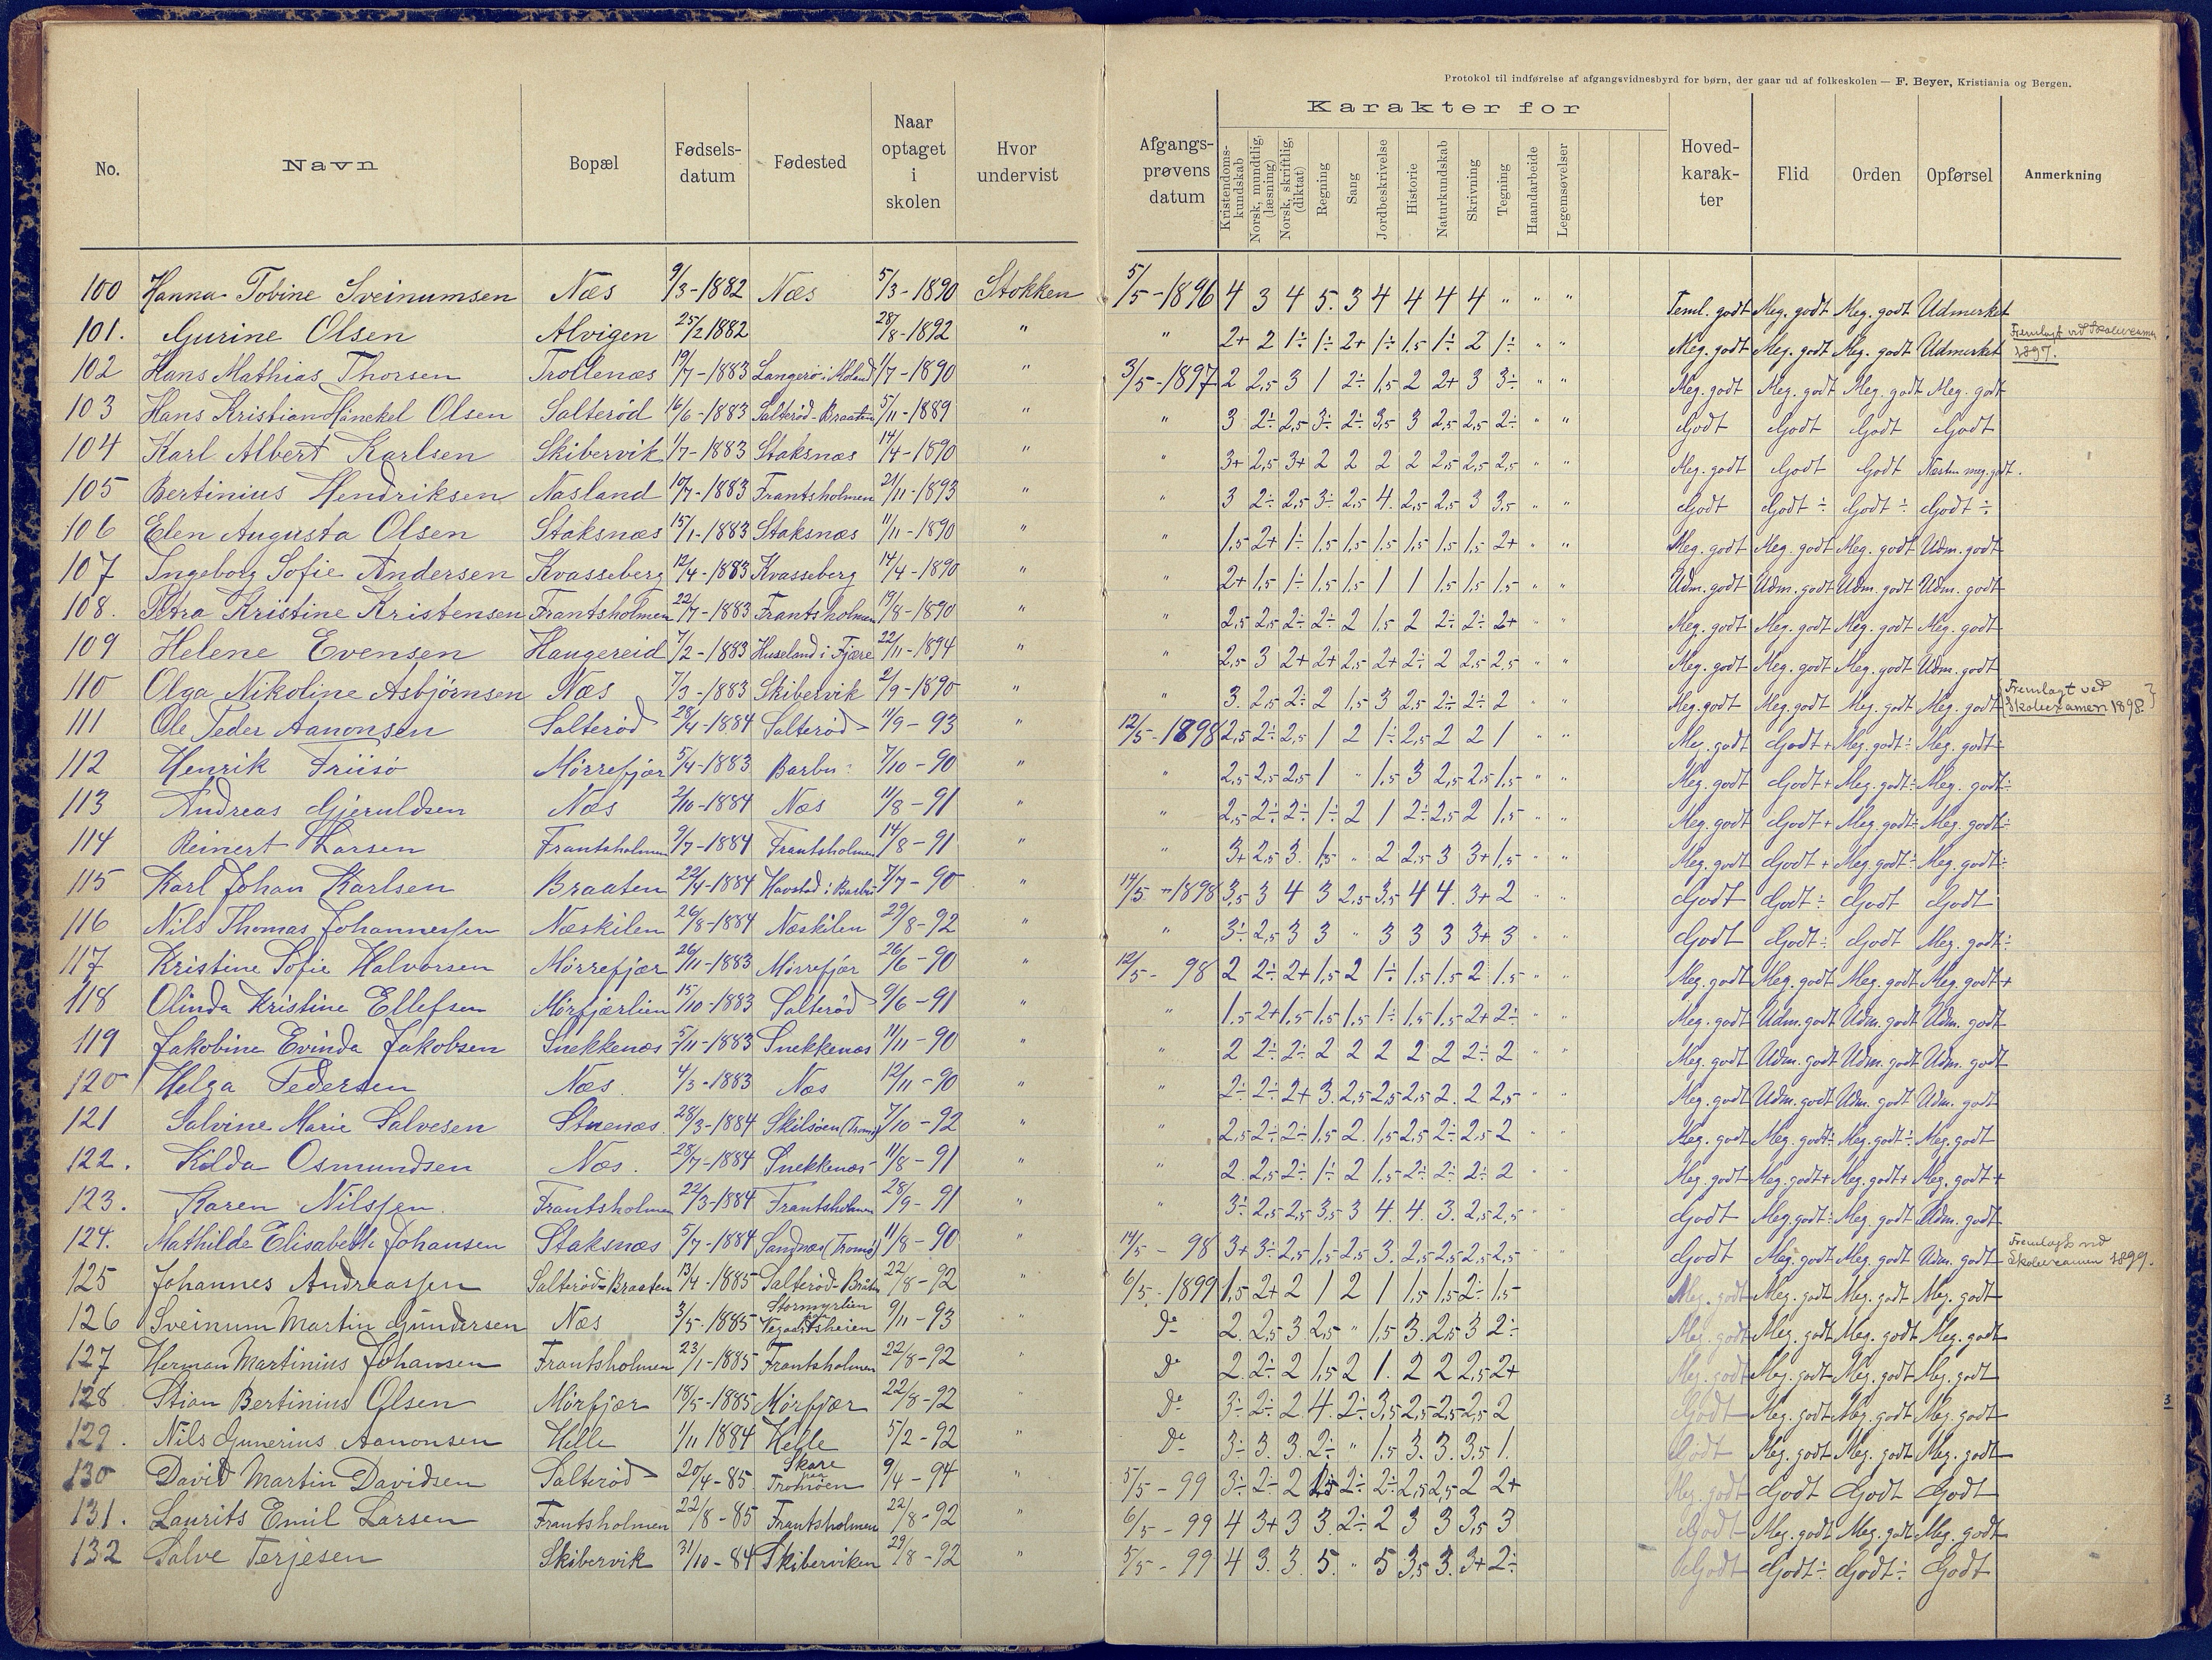 Protokol til indførelse af afgangsvidnesbyrd for børn, der gaar ud af folkeskolen — F. Beyer, Kristiania og Bergen.
No. Navn Bopæl Fødsels-datum Fødested Naar optaget i skolen Hvor undervist Afgangs-prøvens datum Karakter for Kristendoms-kundskab Norsk, mundtlig, (læsning) Norsk, skriftlig, (diktat) Regning Sang Jordbeskrivelse Historie Naturkundskab Skrivning Tegning Haandarbeide Legemsøvelser Hoved-karak-ter Flid Orden Opførsel Anmerkning
100 Hanna Tobine Sveinumsen Næs 9/3-1882 Næs 5/3-1890 Stokken 5/5-1896 4 3 4 5. 3 4 4 4 4 " " " Teml. godt Meg. godt Meg. godt Udmerket
101. Gurine Olsen Alvigen 25/2 1882 28/8-1892 " " 2+ 2 1÷ 1÷ 2+ 1÷ 1,5 1÷ 2 1÷ " " Meg. godt Meg. godt Meg. godt Udmerket Fremlagt ved Skoleexamen 1897.
102 Hans Mathias Thorsen Trollenæs 19/7-1883 Langerø i Moland 1/7-1890 " 3/5-1897 2 2,5 3 1 2÷ 1,5 2 2+ 3 3÷ " " Meg. godt Meg. godt Meg. godt Meg. godt
103 Hans Kristian Hänekel Olsen Salterød 16/6-1883 Salterød-Braaten 5/11-1889 " " 3 2÷ 2,5 3÷ 2÷ 3,5 3 2,5 2,5 2÷ " " Godt Godt Godt Godt
104 Karl Albert Karlsen Skibervik 1/7-1883 Staksnæs 14/4-1890 " " 3+ 2,5 3+ 2 2 2 2 2,5 2,5 2,5 " " Meg. godt Godt Godt Næsten meg. godt.
105 Bertinius Hendriksen Næsland 10/7-1883 Frantsholmen 21/11-1893 " " 3 2÷ 2,5 3÷ 2,5 4. 2,5 2,5 3 3,5 " " Godt Godt ÷ Godt ÷ Godt ÷
106 Elen Augusta Olsen Staksnæs 15/1-1883 Staksnæs 11/11-1890 " " 1,5 2+ 1÷ 1,5 1,5 1,5 1,5 1,5 1,5 2+ " " Meg. godt Meg. godt Meg. godt Udm. godt
107 Ingeborg Sofie Andersen Kvasseberg 12/4-1883 Kvasseberg 14/4-1890 " " 2+ 1,5 1÷ 1,5 1,5 1 1 1,5 1,5 1,5 " " Udm. godt Udm. godt Udm. godt Udm. godt
108. Petra Kristine Kristensen Frantsholmen 22/7-1883 Frantsholmen 19/8-1890 " " 2,5 2,5 2÷ 2÷ 2 1,5 2 2÷ 2÷ 2+ " " Meg. godt Meg. godt Meg. godt Meg. godt
109 Helene Evensen Haugereid 7/2-1883 Huseland i Fjære 22/11-1894 " " 2,5 3 2+ 2+ 2,5 2+ 2÷ 2 2,5 2,5 " " Meg. godt Meg. godt Meg. godt Udm. godt
110 Olga Nikoline Asbjørnsen Næs 7/3-1883 Skibervik 2/9-1890 " " 3. 2,5 2÷ 2 1,5 3 2,5 2÷ 2÷ 2 " " Meg. godt Meg. godt Meg. godt Meg. godt Fremlagt ved Skoleexamen 1898.
111 Ole Peder Aanonsen Salterød 28/4-1884 Salterød 11/9-93 12/5-1898 2,5 2÷ 2,5 1 2 1÷ 2,5 2 2 1 " " Meg. godt Godt + Meg. godt÷ Meg. godt÷
112 Henrik Friisø Mørrefjær 5/4-1883 Barbu 7/10-90 " " 2,5 2,5 2,5 1 " 1,5 3 2,5 2,5 1,5 " " Meg. godt Godt+ Meg. godt÷ Meg. godt÷
113 Andreas Gjeruldsen Næs 2/10-1884 Næs 11/8-91 " " 2,5 2÷ 2÷ 1÷ 2 1 2÷ 2,5 2 1,5 " " Meg. godt Godt+ Meg. godt÷ Meg. godt÷
114 Reinert Larsen Frantsholmen 9/7-1884 Frantsholmen 14/8-91 " " 3+ 2,5 3. 1,5 " 2 2,5 3 3+ 1,5 " " Meg. godt Godt + Meg. godt÷ Meg. godt÷
115 Karl Johan Karlsen Braaten 22/4-1884 Havstad i Barbu 7/7-90 " 14/5-1898 3,5 3 4 3 2,5 3,5 4 4. 3+ 2 " " Godt Godt÷ Godt Godt
116 Nils Thomas Johannessen Næskilen 26/8-1884 Næskilen 29/8-92 " " 3÷ 2,5 3 3 " 3 3 3 3+ 3 " " Godt Godt÷ Godt Meg. godt÷
117 Kristine Sofie Halvorsen Mørrefjær 26/11-1883 Mørrefjær 26/6-90 " 12/5- 98 2 2÷ 2+ 1,5 2 1÷ 1,5 1,5 2 1,5 " " Meg. godt Meg. godt Meg. godt Meg. godt+
118 Olinda Kristine Ellefsen Mørfjærlien 15/10-1883 Salterød 9/6-91 " " 1,5 2+ 1,5 1,5 1,5 1÷ 1,5 1,5 2+ 2÷ " " Meg. godt Udm. godt Udm. godt Udm. godt
119 Jakobine Evinda Jakobsen Snekkenæs 5/11-1883 Snekkenæs 11/11-90 " " 2 2÷ 2÷ 2 2 2 2 2 2÷ 2 " " Meg. godt Udm. godt Udm. godt Udm. godt
120 Helga Pedersen Næs 4/3-1883 Næs 12/11-90 " " 2÷ 2÷ 2+ 3. 2,5 2,5 2,5 2. 2 2,5 " " Meg. godt Udm. godt Udm. godt Udm. godt
121 Salvine Marie Salvesen Stuenæs 28/3-1884 Skilsøen (Tromø) 7/10-92 " " 2,5 2÷ 2÷ 1,5 2. 1,5 2,5 2÷ 2,5 2 " " Meg. godt Meg. godt÷ Meg. godt÷ Meg. godt
122. Kilda Osmundsen Næs. 28/7-1884 Snekkenæs 11/8-91 " " 2. 2,5 2÷ 1÷ 2 1,5 2÷ 2÷ 2÷ 2 " " Meg. godt Meg. godt+ Meg. godt+ Meg. godt+
123. Karen Nilssen Frantsholmen 22/3-1884 Frantsholmen 28/9-91 " " 3÷ 2,5 2,5 3,5 3 4. 4. 3. 2,5 2,5 " " Godt Meg. godt÷ Meg. godt Udm. godt
124. Mathilde Elisabeth Johansen Staksnæs 5/7-1884 Sandnæs (Tromø) 11/8-90 " 14/5- 98 3+ 3÷ 2,5 1,5 2,5 3. 2,5 2,5 2,5 2,5 " " Godt Meg. godt Meg. godt Udm. godt Fremlagt ved Skoleexamen 1899.
125 Johannes Andreassen Salterød-Braaten 13/4-1885 Salterød-Bråten 22/8-92 " 6/5-1899 1,5 2+ 2 1 2 1 1,5 1,5 2÷ 1,5 Meg. godt Meg. godt Meg. godt Meg. godt
126 Sveinum Martin Gundersen Næs 3/5-1885 Stormyrlien 9/11-93 " Do 2. 2,5 3 2,5 " 1,5 3. 2,5 3 2÷ Meg. godt Meg. godt Meg. godt Meg. godt
127 Herman Martinius Johansen Frantsholmen 23/1-1885 Frantsholmen 22/8-92 " Do 2. 2÷ 2 1,5 2 1. 2 2 2,5 2+ Meg. godt Meg. godt Meg. godt Meg. godt
128 Stian Bertinius Olsen Mørfjær 18/5-1885 Mørfjær 22/8-92 " Do 3÷ 2÷ 2. 4. 2÷ 3,5 2,5 2,5 2,5 2 Godt Meg. godt Meg. godt Meg. godt
129. Nils Gunerius Aanonsen Helle 1/11 1884 Helle 5/2-92 " Do 3÷ 3. 3. 2÷ " 1,5 3. 3. 3,5 1. Godt Meg. godt Meg. godt Meg. godt
130 David Martin Davidsen Salterød 20/4-85 Skare paa Tromøen 9/4-94 " 5/5-99 3÷ 2÷ 2 2÷ 2÷ 2,5 2,5 2 2+ Meg. godt Godt Godt Godt
131. Laurits Emil Larsen Frantsholmen 22/8-85 Frantsholmen 22/8-92 " 6/5-99 4 3+ 3 3. 2÷ 2 3 3 3,5 3 Godt Meg. godt Meg. godt Meg. godt
132 Salve Terjesen Skibervik 31/10-84 Skiberviken 29/8-92 " 5/5-99 4 3. 3. 5. " 5 3,5 3. 3+ 2÷ Godt Godt÷ Godt÷ Godt